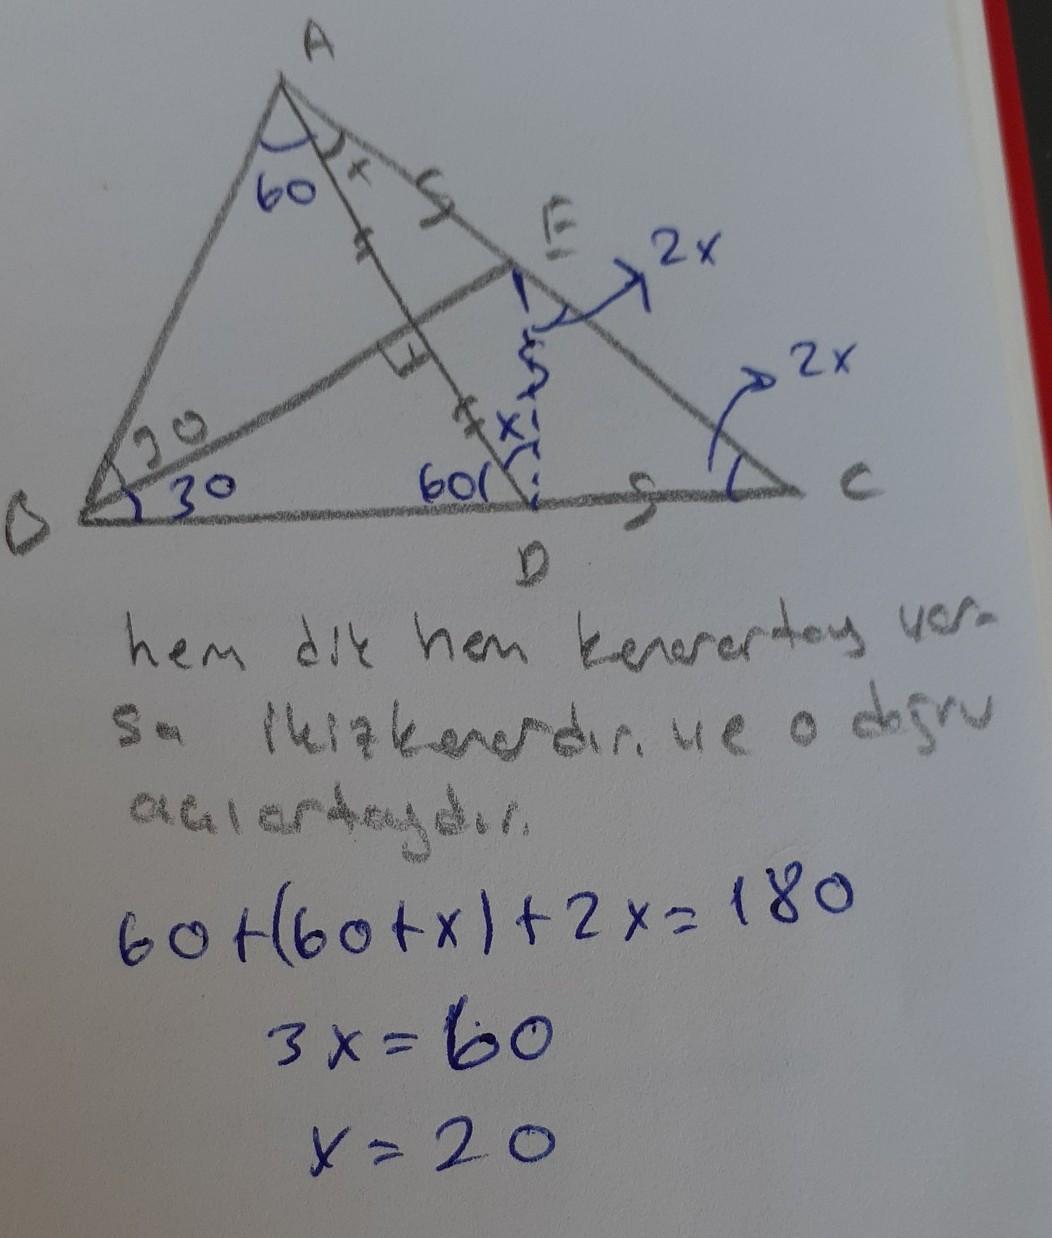 A
60
x
E
2x
2x
30
x
B
30
60
C
D
hem dik hem kenarortay var-
sa ikizkenardır. ve o doğru
açıortaydır.
60+(60+x)+2x=180
3x=60
x=20